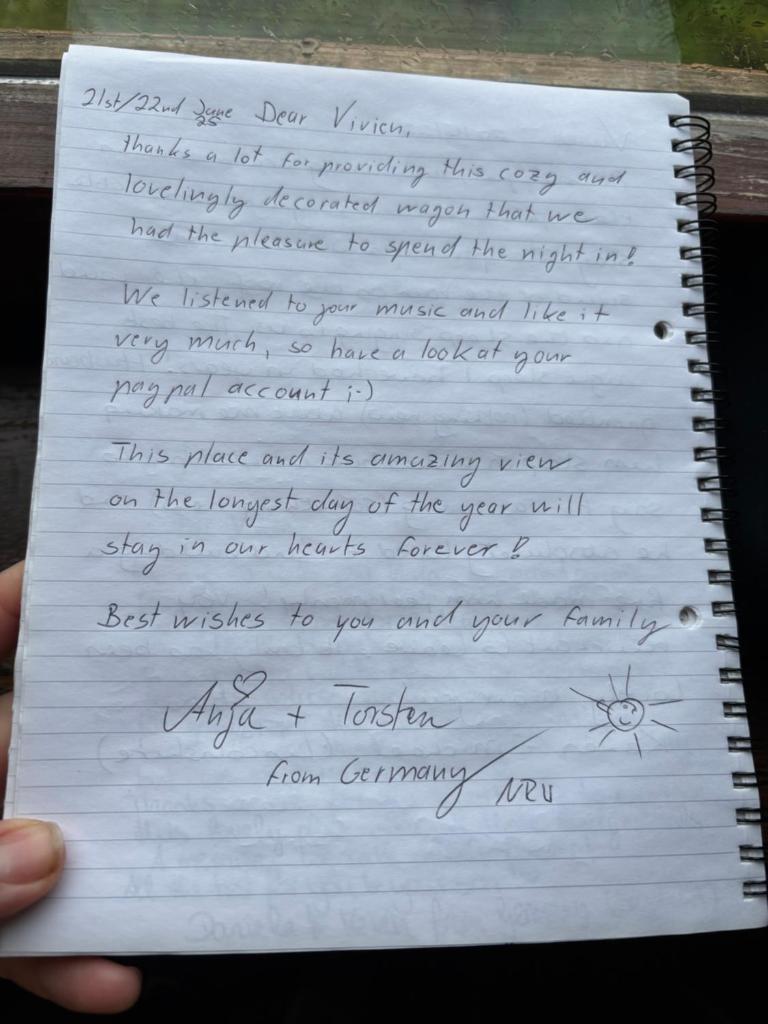 21st/22nd June 25 Dear Vivien,
thanks a lot for providing this cozy and
lovelingly decorated wagon that we
had the pleasure to spend the night in!
We listened to your music and like it
very much, so have a look at your
paypal account ;-)
This place and its amazing view
on the longest day of the year will
stay in our hearts forever!
Best wishes to you and your family
Anja + Torsten
from Germany/NRW